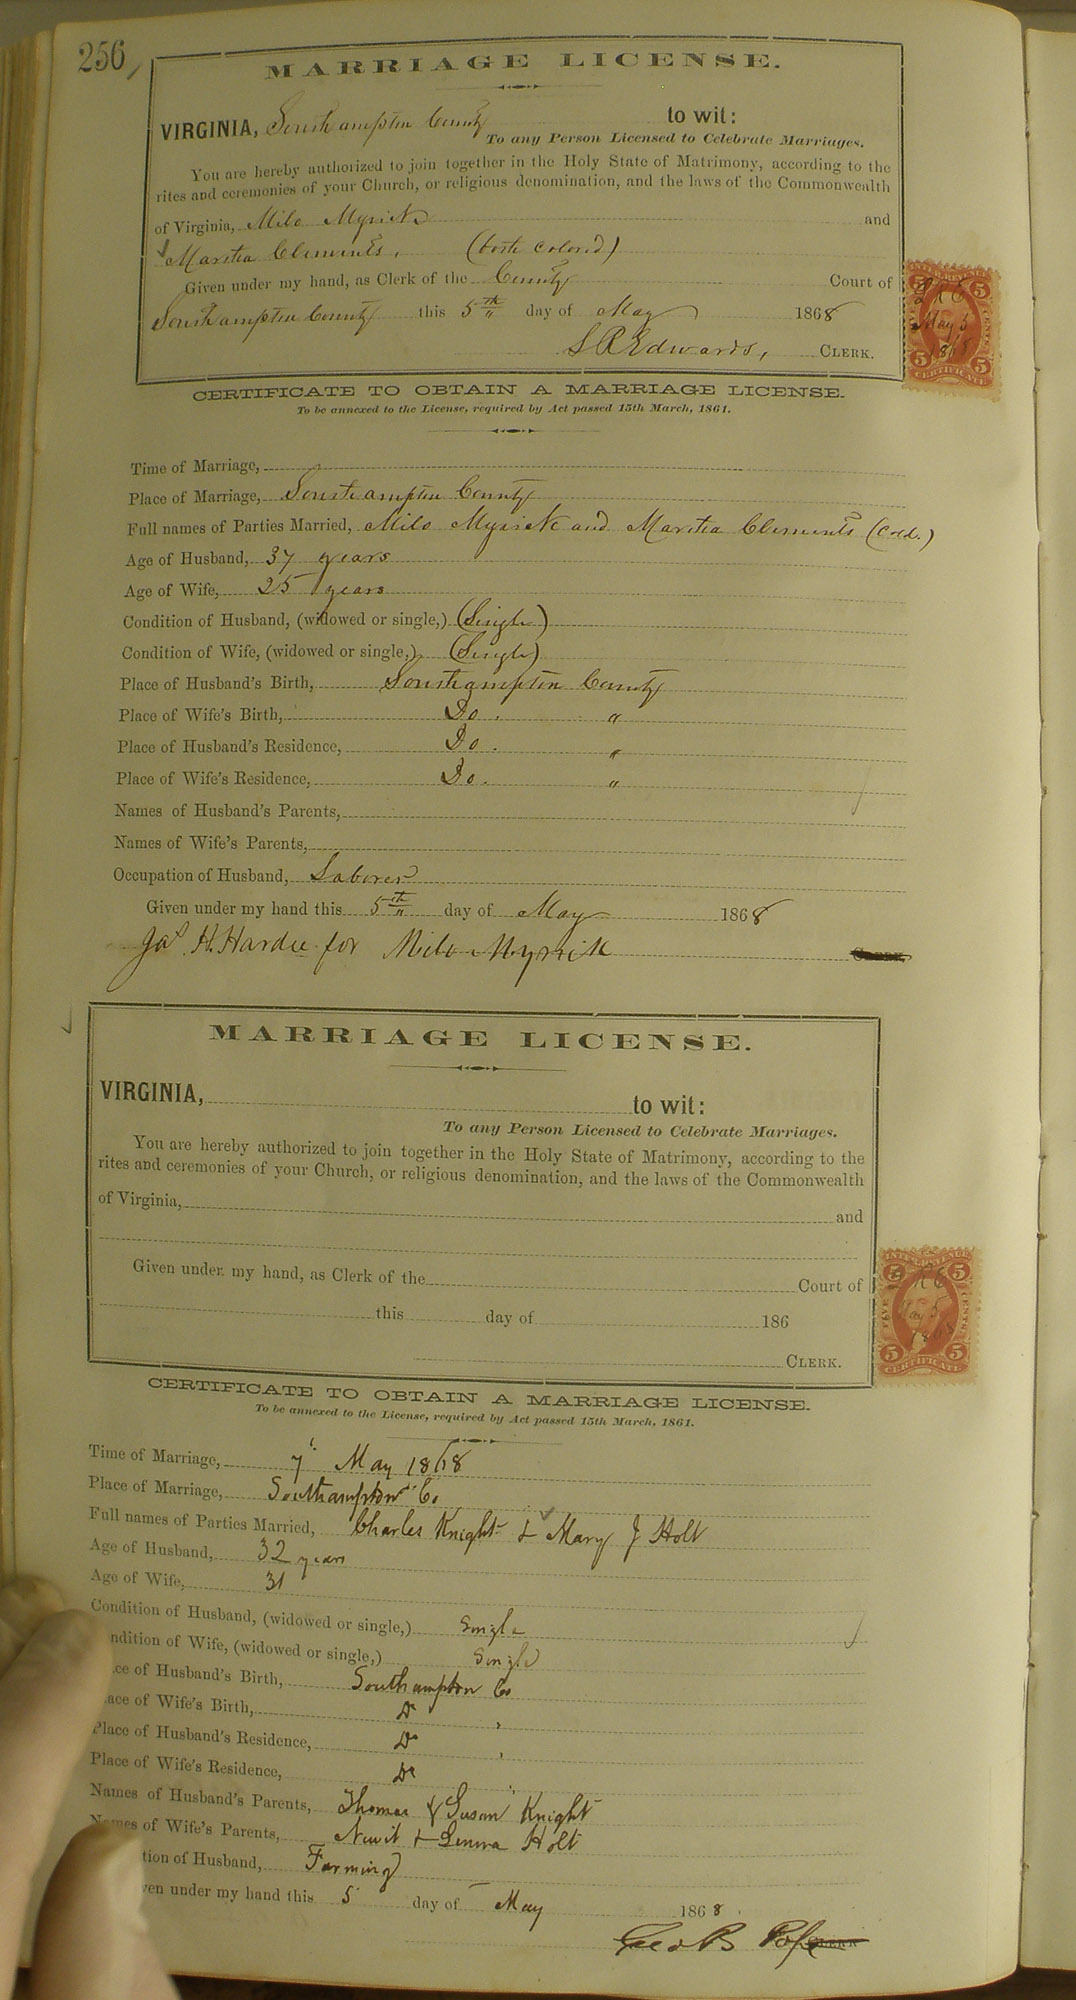 256
MARRIAGE LICENSE.
VIRGINIA, Southampton County to wit:
To any Person Licensed to Celebrate Marriages.
You are hereby authorized to join together in the Holy State of Matrimony, according to the
rites and ceremonies of your Church, or religious denomination, and the laws of the Commonwealth
of Virginia, Milo Myrick and
Martha Clements, (both colored)
Given under my hand, as Clerk of the County Court of
Southampton County this 5th day of May 1868
L R Edwards, CLERK.
INTER. REVENUE
5 5
L R E
May 5
1868
5 5
CERTIFICATE
CERTIFICATE TO OBTAIN A MARRIAGE LICENSE.
To be annexed to the License, required by Act passed 15th March, 1861.
Time of Marriage,
Place of Marriage, Southampton County
Full names of Parties Married, Milo Myrick and Martha Clements (Cold.)
Age of Husband, 37 years
Age of Wife, 25 years
Condition of Husband, (widowed or single,) (Single)
Condition of Wife, (widowed or single,) (Single)
Place of Husband's Birth, Southampton County
Place of Wife's Birth, Do. "
Place of Husband's Residence, Do. "
Place of Wife's Residence, Do. "
Names of Husband's Parents,
Names of Wife's Parents,
Occupation of Husband, Laborer
Given under my hand this 5th day of May 1868
Jas. H. Hardee for Milo Myrick
MARRIAGE LICENSE.
VIRGINIA, to wit:
To any Person Licensed to Celebrate Marriages.
You are hereby authorized to join together in the Holy State of Matrimony, according to the
rites and ceremonies of your Church, or religious denomination, and the laws of the Commonwealth
of Virginia, and
Given under my hand, as Clerk of the Court of
this day of 186
CLERK.
INTER. REVENUE
5 5
L R E
May 5
1868
FIVE CENTS
5 5
CERTIFICATE
CERTIFICATE TO OBTAIN A MARRIAGE LICENSE.
To be annexed to the License, required by Act passed 15th March, 1861.
Time of Marriage, 7 May 1868
Place of Marriage, Southampton Co
Full names of Parties Married, Charles Knight & Mary J Holt
Age of Husband, 32 years
Age of Wife, 31
Condition of Husband, (widowed or single,) Single
ndition of Wife, (widowed or single,) Single
ce of Husband's Birth, Southampton Co
ace of Wife's Birth, Do "
Place of Husband's Residence, Do "
Place of Wife's Residence, Do "
Names of Husband's Parents, Thomas & Susan Knight
Names of Wife's Parents, Newit & Holt
tion of Husband, Farming
ven under my hand this 5 day of May 1868
Geo B Pope